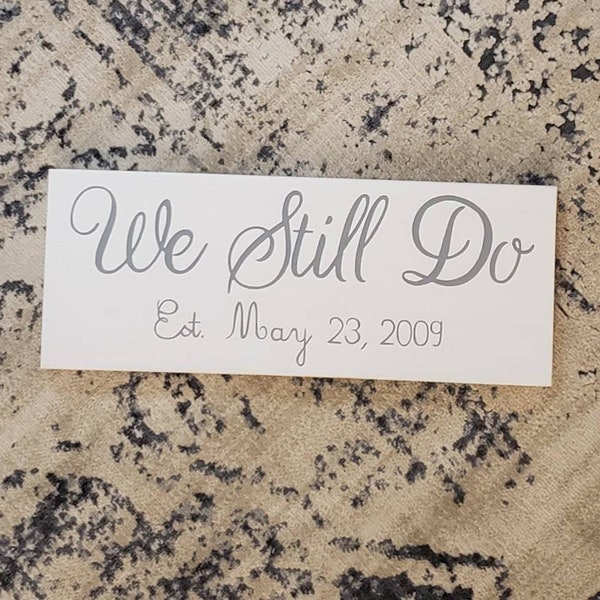 We Still Do
Est. May 23, 2009